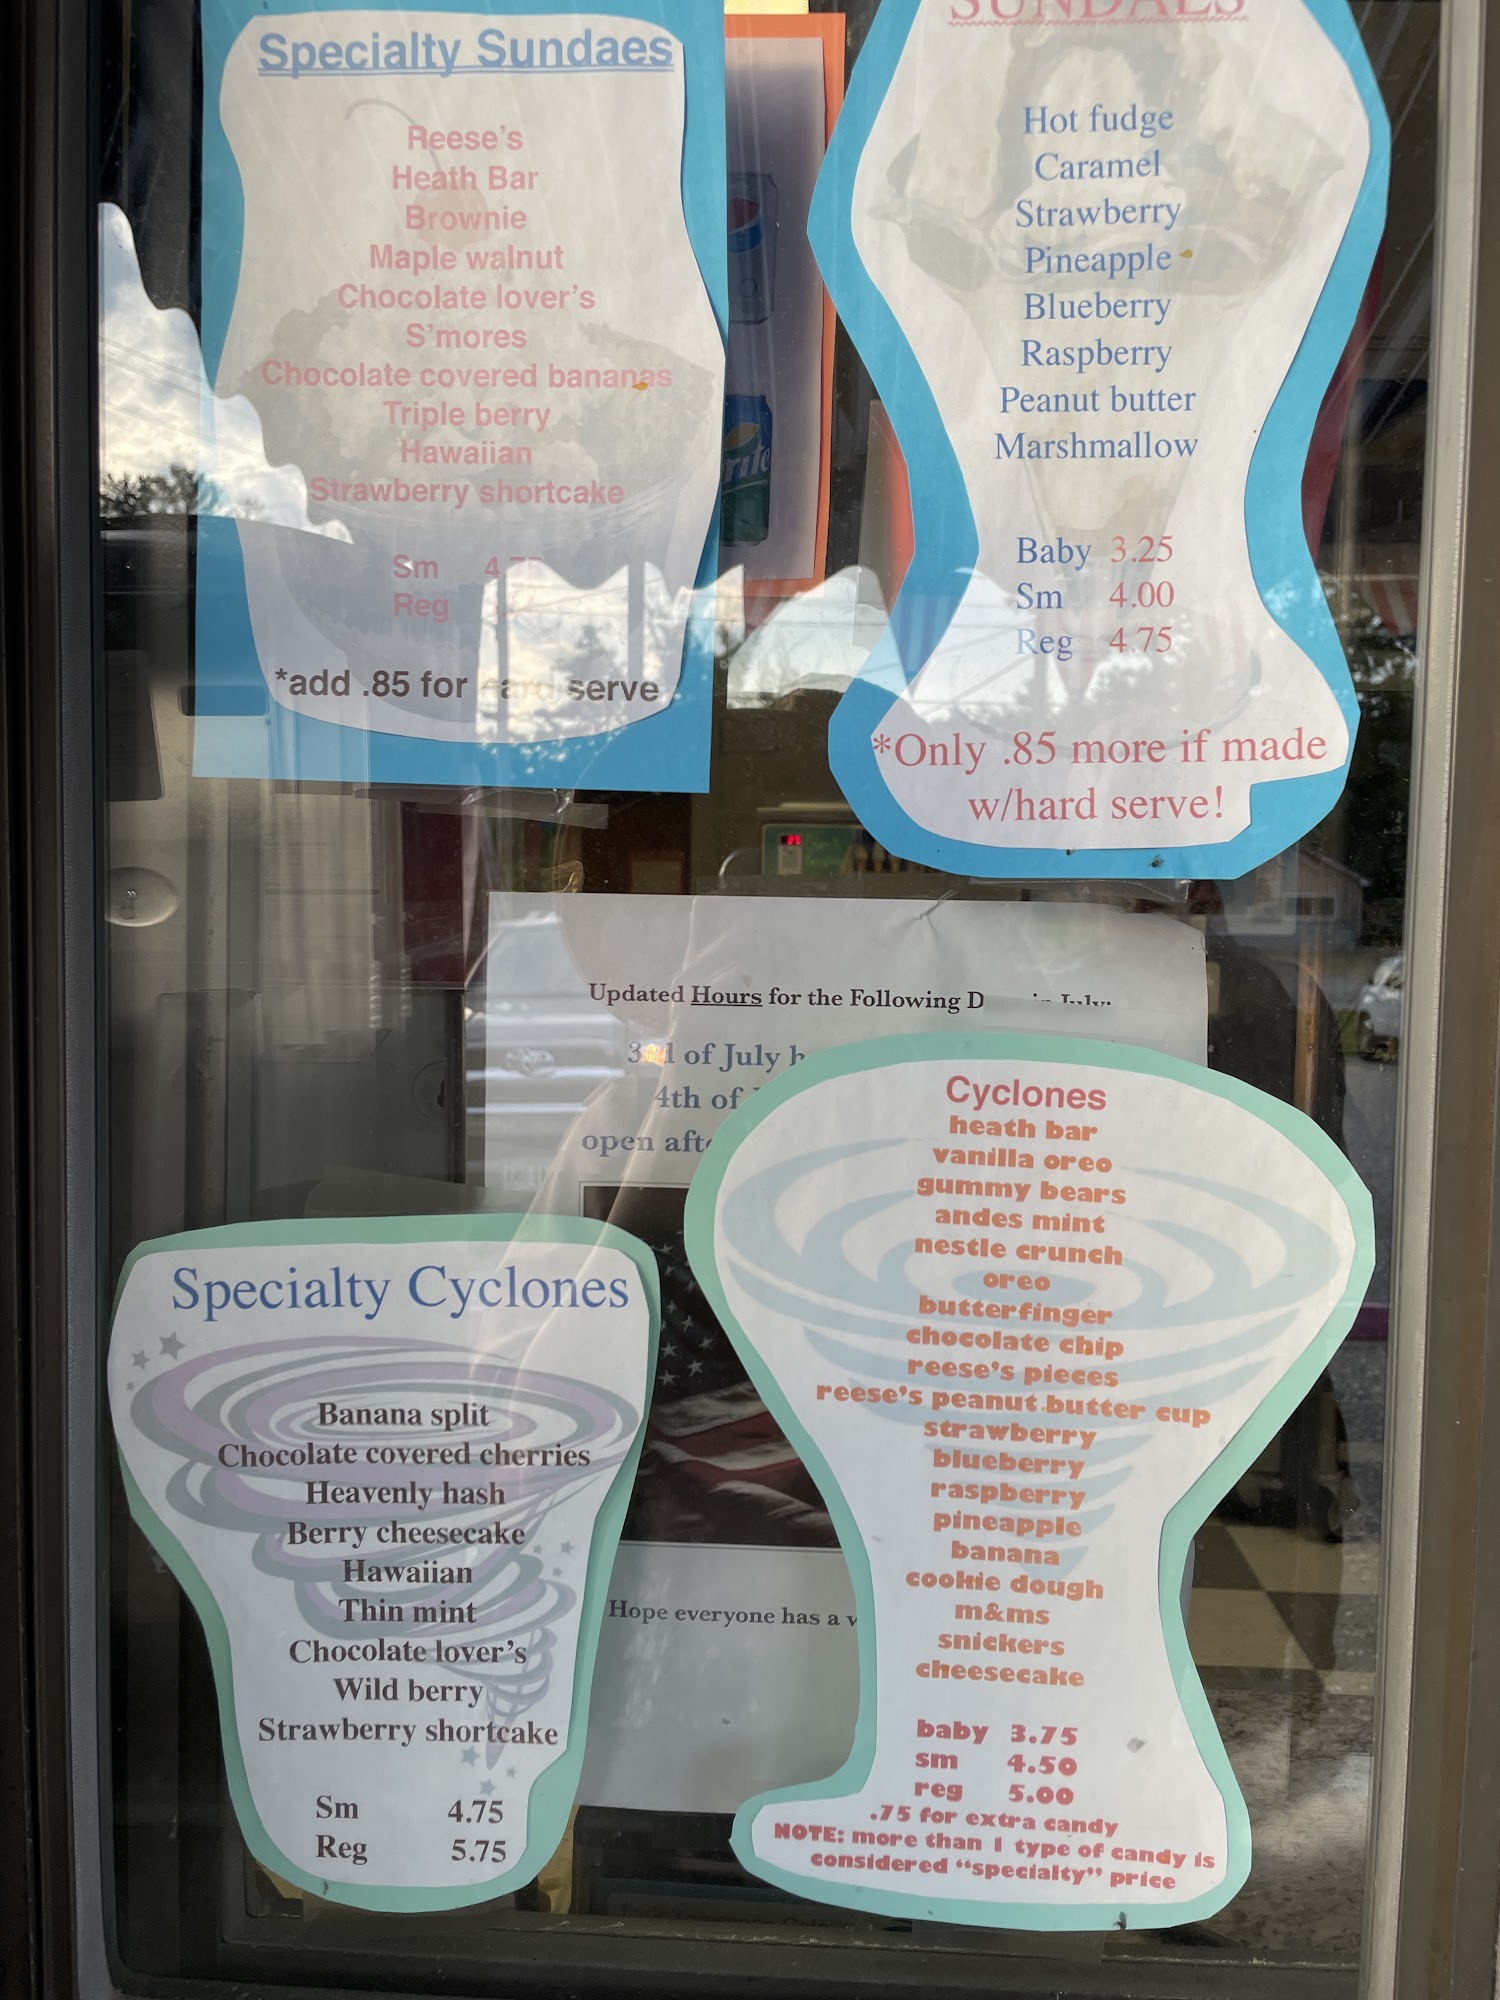 Specialty Sundaes
Reese's
Heath Bar
Brownie
Maple walnut
Chocolate lover's
S'mores
Chocolate covered bananas
Triple berry
Hawaiian
Strawberry shortcake
Sm 4.75
Reg
*add .85 for hard serve
SUNDAES
Hot fudge
Caramel
Strawberry
Pineapple
Blueberry
Raspberry
Peanut butter
Marshmallow
Baby 3.25
Sm 4.00
Reg 4.75
*Only .85 more if made
w/hard serve!
Updated Hours for the Following in July:
3rd of July
4th of
open
Hope everyone has a
Specialty Cyclones
Banana split
Chocolate covered cherries
Heavenly hash
Berry cheesecake
Hawaiian
Thin mint
Chocolate lover's
Wild berry
Strawberry shortcake
Sm 4.75
Reg 5.75
Cyclones
heath bar
vanilla oreo
gummy bears
andes mint
nestle crunch
oreo
butterfinger
chocolate chip
reese's pieces
reese's peanut butter cup
strawberry
blueberry
raspberry
pineapple
banana
cookie dough
m&ms
snickers
cheesecake
baby 3.75
sm 4.50
reg 5.00
.75 for extra candy
NOTE: more than 1 type of candy is
considered "specialty" price